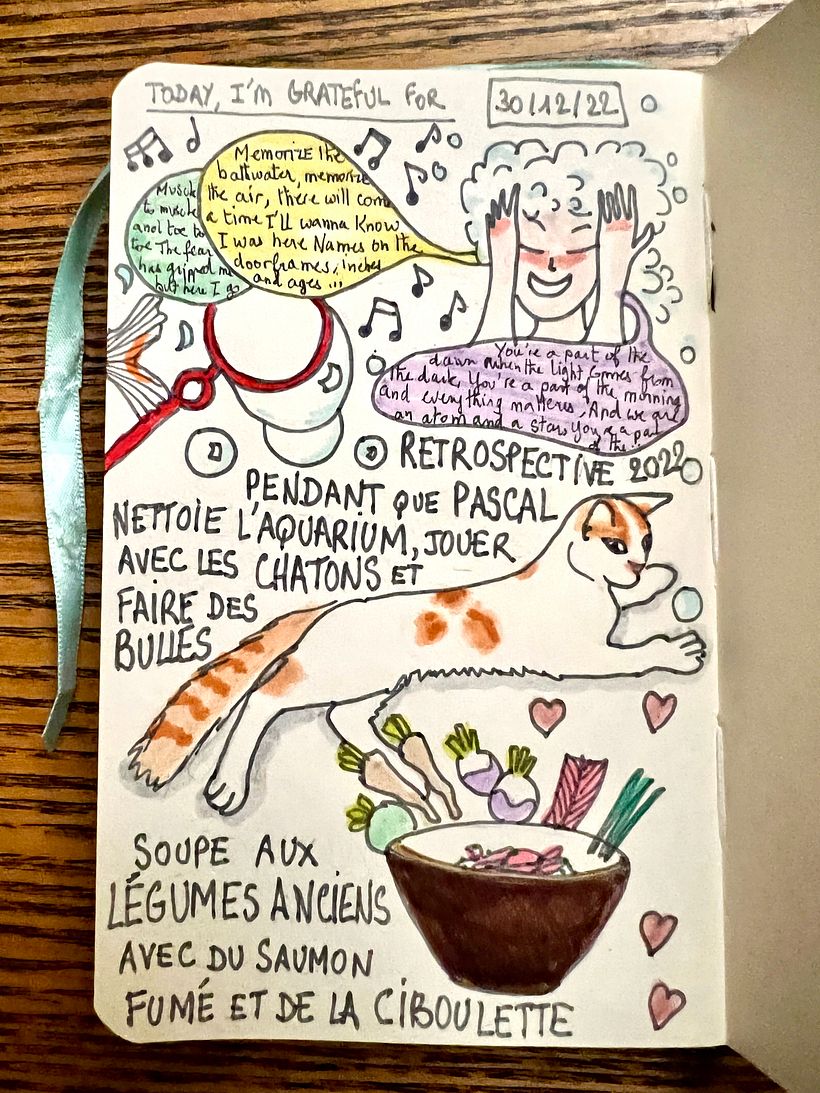 TODAY, I'M GRATEFUL FOR
30/12/22
Muscle
to muscle
and toe to
toe The fear
has gripped me
but here I go
Memorize the
bathwater, memorize
the air, there will come
a time I'll wanna know
I was here Names on the
doorframes, inches
and ages ...
You're a part of the
dawn when the light comes from
the dark, You're a part of the morning
and everything matters, And we are
an atom and a star You're a part
of the ...
RETROSPECTIVE 2022
PENDANT QUE PASCAL
NETTOIE L'AQUARIUM, JOUER
AVEC LES CHATONS ET
FAIRE DES
BULLES
SOUPE AUX
LÉGUMES ANCIENS
AVEC DU SAUMON
FUMÉ ET DE LA CIBOULETTE